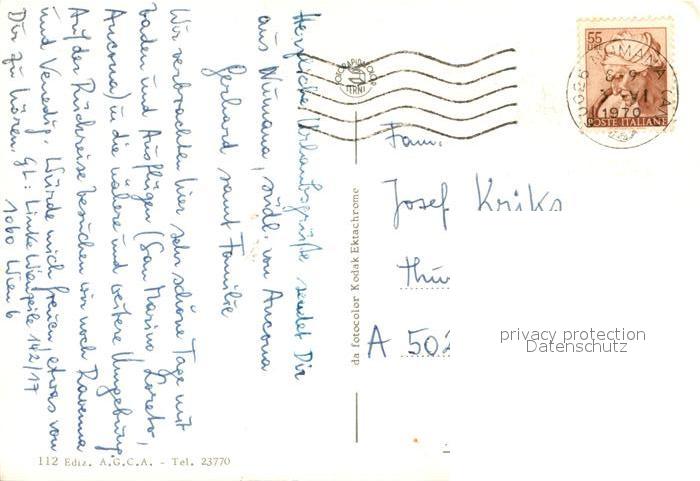 Herzliche Urlaubsgrüße sendet Dir
aus Numana, südl. von Ancona
Gerhard samt Familie
Wir verbrachten hier sehr schöne Tage mit
baden und Ausflügen (San Marino, Loreto,
Ancona) in die nähere und weitere Umgebung.
Auf der Rückreise besuchen wir noch Ravenna
und Venedig. Würde mich freuen, etwas von
Dir zu hören. GL: Linke Wienzeile 142/17
1060 Wien 6
112 Ediz. A.G.C.A. - Tel. 23770
da fotocolor Kodak Ektachrome
55
LIRE
POSTE ITALIANE
NUMANA (AN)
1970
TERNI
Fam.
Josef Kriks
Thü
A 502
privacy protection
Datenschutz